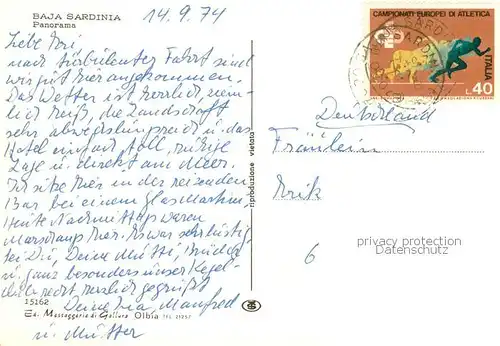 BAJA SARDINIA
Panorama
14.9.74
Liebe
nach turbulenter Fahrt sind
wir gut hier angekommen.
Das Wetter ist herrlich, ziem-
lich heiß, die Landschaft
sehr abwechslungsreich u. das
Hotel einfach toll, ruhige
Lage u. direkt am Meer.
Ich sitze hier in der reizenden
Bar bei einem Glas Martini
Heute Nachmittag waren
hier. Es war sehr lustig
Dir, Deine Mutti, Brüder
u. ganz besonders unser Kegel-
recht herzlich gegrüßt
Deine Manfred
u. Mutter
15162
Ed. Mossaggeria di Gallura Olbia TEL. 21257
riproduzione vietata
CAMPIONATI EUROPEI DI ATLETICA
ITALIA
L.40
Deutschland
Fräulein
6
privacy protection
Datenschutz